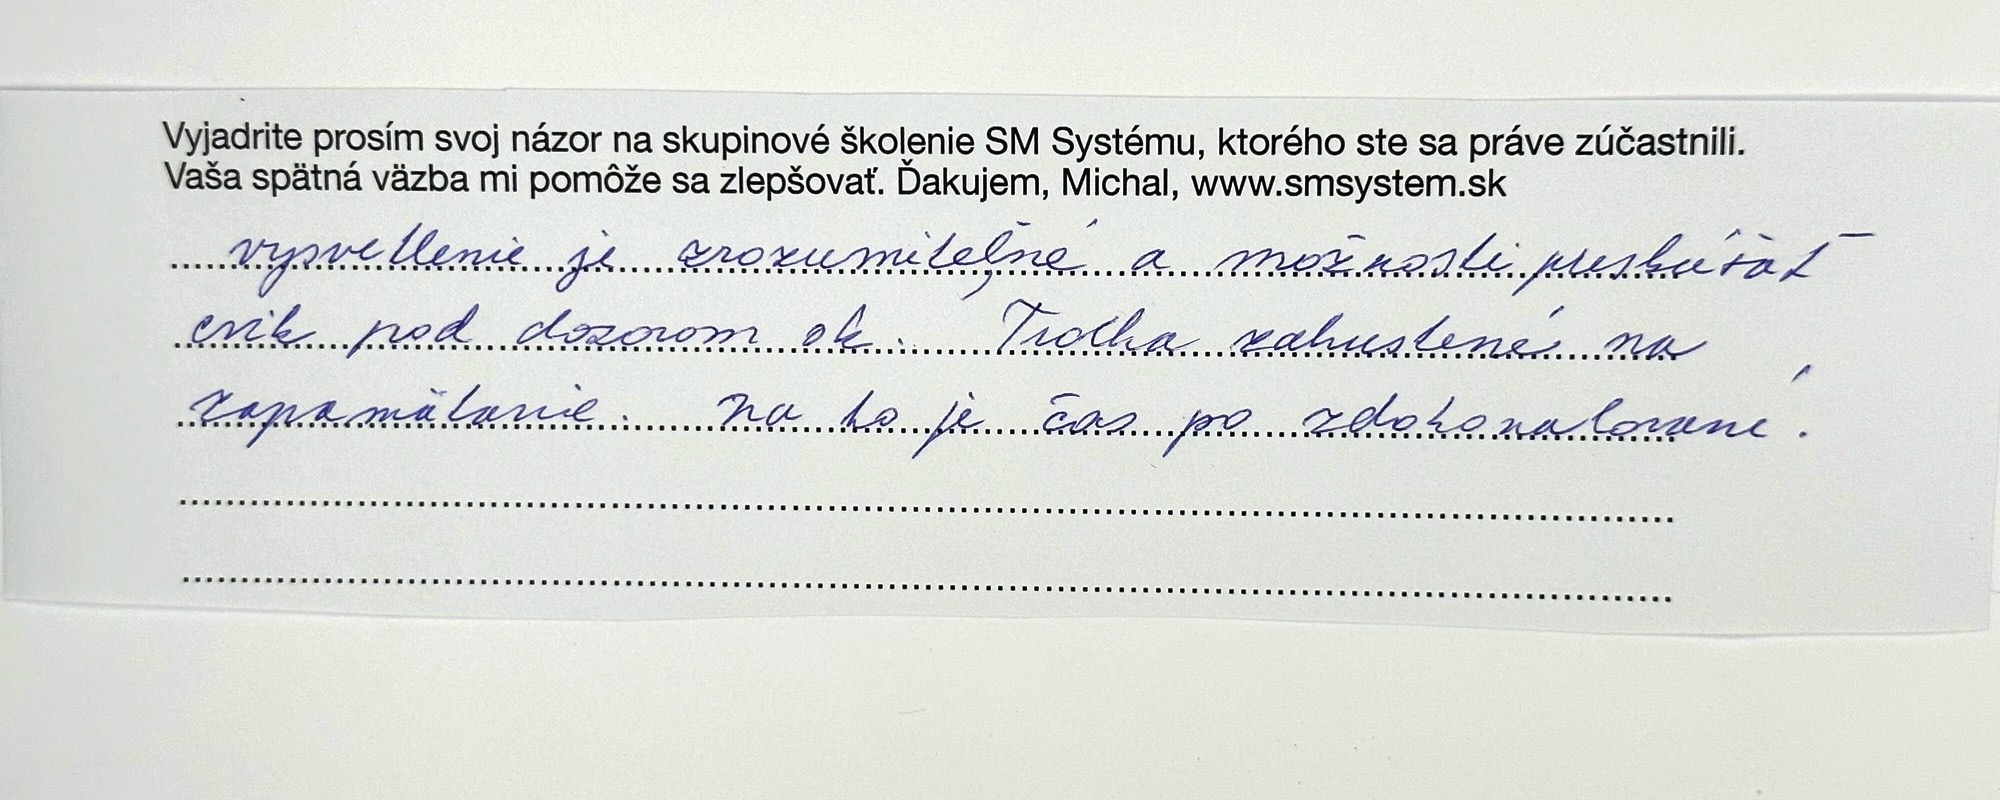 Vyjadrite prosím svoj názor na skupinové školenie SM Systému, ktorého ste sa práve zúčastnili.
Vaša spätná väzba mi pomôže sa zlepšovať. Ďakujem, Michal, www.smsystem.sk
vysvetlenie je zrozumiteľné a možnosti preskúšať
cvik pod dozorom ok. Trocha zahustené na
zapamätanie. na to je čas po zdokonalovaní.